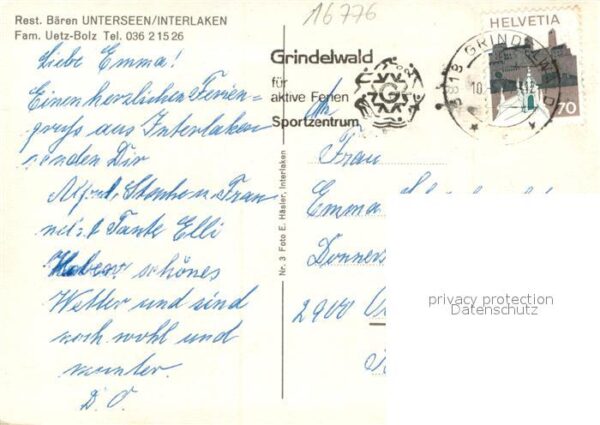 16776
Rest. Bären UNTERSEEN/INTERLAKEN
Fam. Uetz-Bolz Tel. 036 2 15 26
Liebe Emma!
Einen herzlichen Ferien=
gruss aus Interlaken
senden Dir
Alfred,
Tante Elli
Haben schönes
Wetter und sind
noch wohl und
munter.
D. O.
Nr. 3 Foto E. Häsler, Interlaken
Grindelwald
für
aktive Ferien
Sportzentrum
HELVETIA
70
3818 GRINDELWALD
10
12
An
Frau
Emma
Donners
2900
privacy protection
Datenschutz